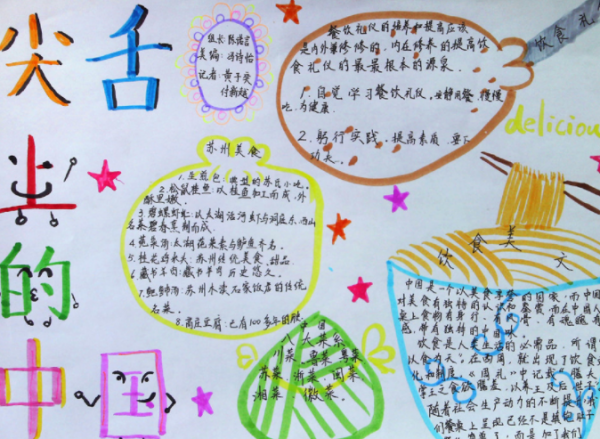 舌尖
上
的
中国
组长:陈
美编:冯诗怡
记者:黄子奕
付新越
餐饮礼仪的培养和提高应该
是内外兼修的,内在修养的提高饮
食礼仪的最最根本的源泉。
1.自觉学习餐饮礼仪,安静用餐,慢慢
吃,为健康.
2.躬行实践,提高素质,要下
功夫。
饮食礼
delicious
苏州美食
1.生煎包:典型的苏氏小吃。
2.松鼠桂鱼:以桂鱼加工而成,外
酥里嫩。
3.碧螺虾仁:以太湖活河虾与洞庭东西山
名茶碧春烹制而成.
4.莼菜汤:太湖莼菜素与鲈鱼齐名.
5.桂花鸡头米:苏州传统美食,甜品
6.藏书羊肉:藏书羊肉历史悠久.
7.鲃肺汤:苏州木渎石家饭店的传统
名菜。
8.卤豆腐:已有100多年的
中国
八大菜系
川菜、鲁菜、粤菜
苏菜、浙菜、闽菜
湘菜、徽菜。
饮食类文
中国是一个以美食享誉的国家,而中国人
对美食有独特的
桌上食物有身
感,带有独特的中国
饮食是人类生活的必需品,所谓
以食为天",在西周,就出现了饮食文
化和制度。《周礼》中记载
随着社会生产动力的不断提
们餐桌上呈现已经不是填饱肚子